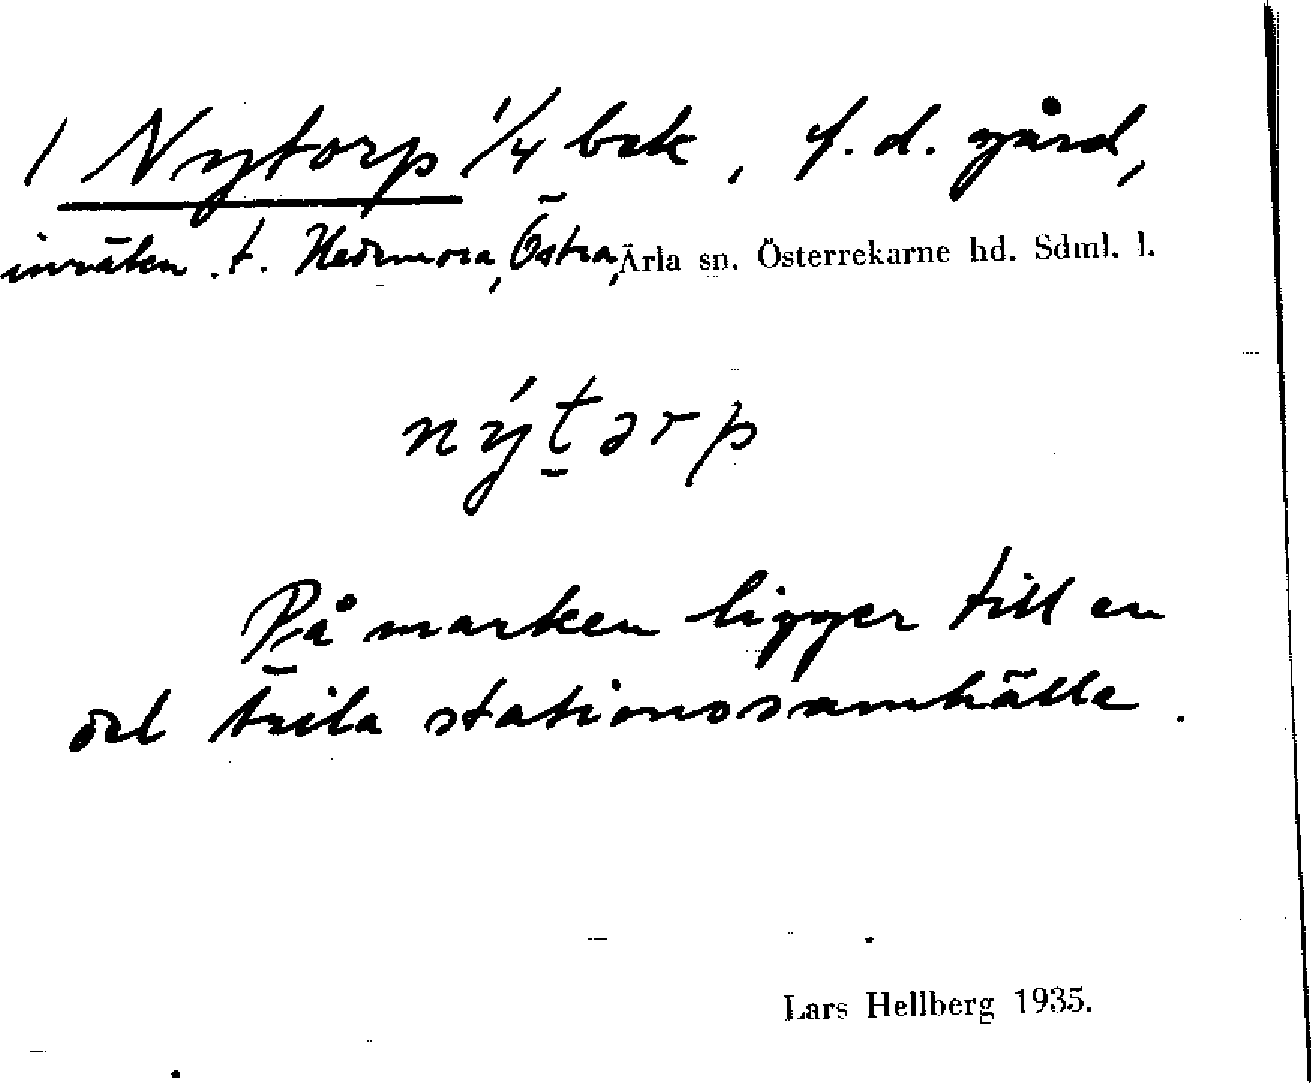 1 Nytorp 1/4 bsk, f. d. gård,
inräkn. t. Hedemora, Östra, Ärla sn. Österrekarne hd. Sdml. l.
nýtorp
På marken ligger till en
del Ärila stationssamhälle.
Lars Hellberg 1935.